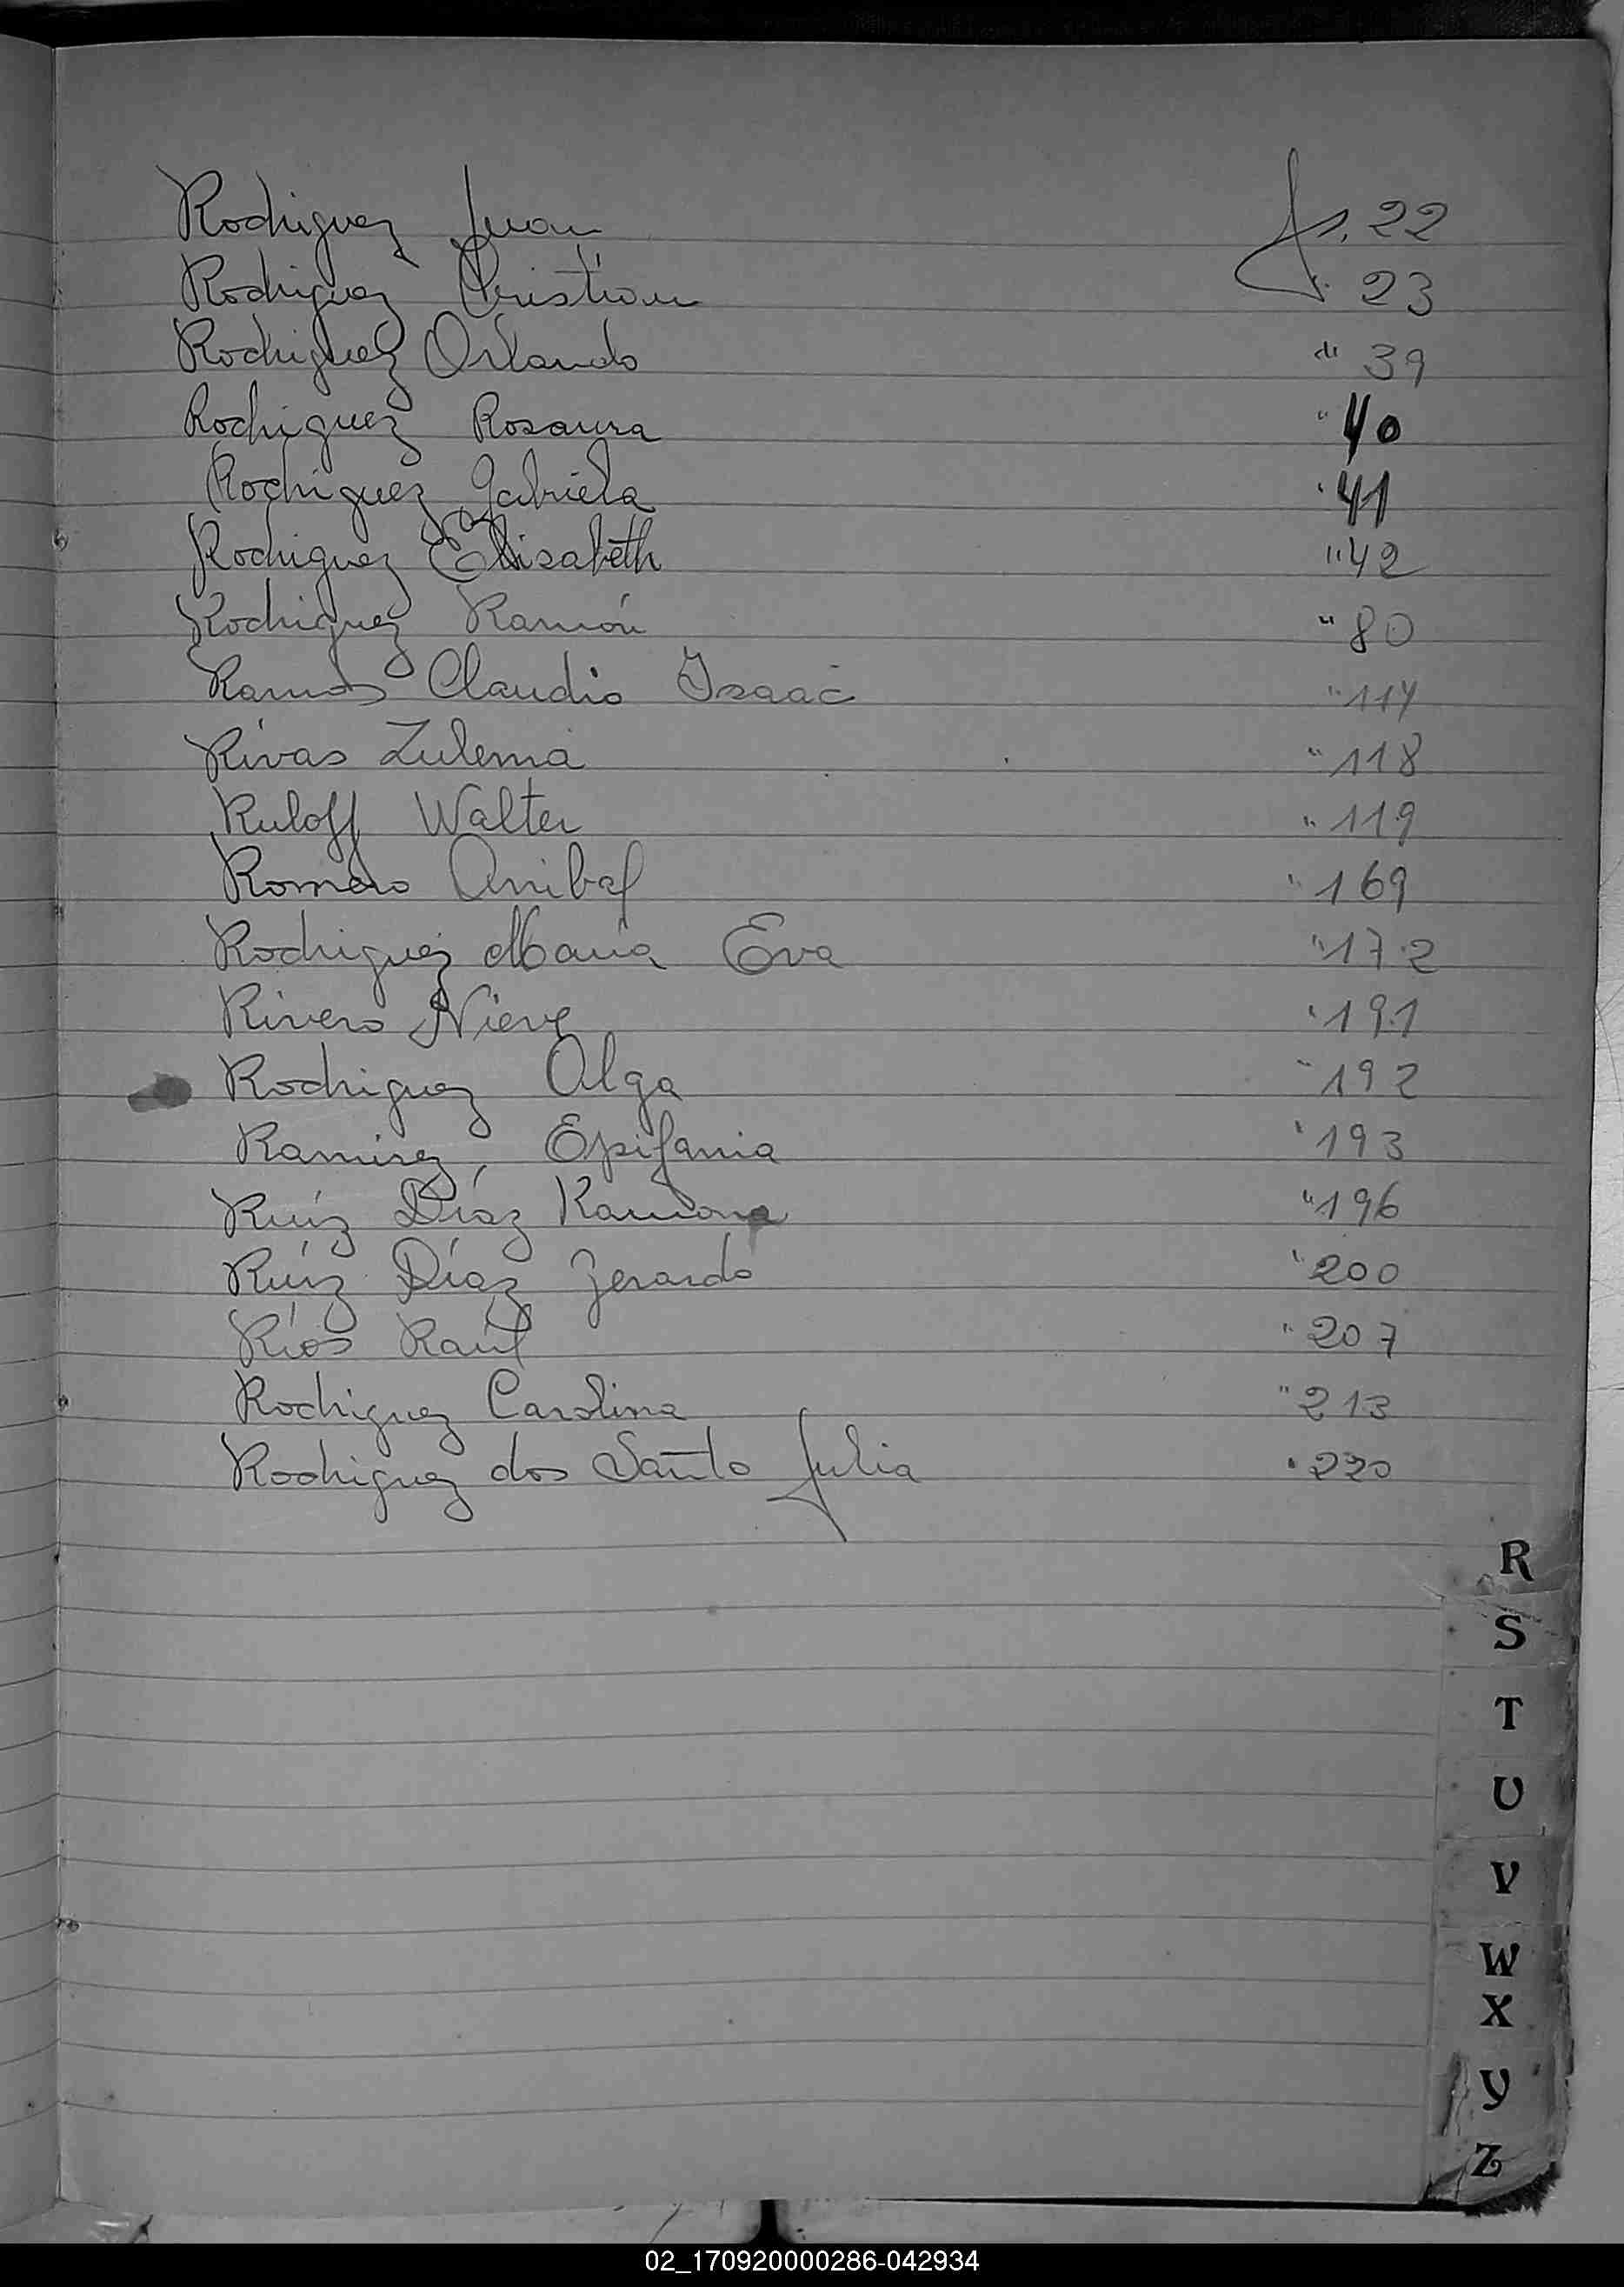 Rodriguez Juan fs. 22
Rodriguez Cristian " 23
Rodriguez Orlando " 39
Rodriguez Rosaura " 40
Rodriguez Gabriela " 41
Rodriguez Elisabeth " 42
Rodriguez Ramón " 80
Ramos Claudio Isaac " 114
Rivas Zulema " 118
Ruloff Walter " 119
Romero Anibal " 169
Rodriguez Maria Eva " 172
Rivero Nieve " 191
Rodriguez Olga " 192
Ramirez, Epifania " 193
Ruíz Díaz Ramona " 196
Ruíz Díaz Gerardo " 200
Ríos Raúl " 207
Rodriguez Carolina " 213
Rodriguez dos Santo Julia " 220
R
S
T
U
V
W
X
Y
Z
02_170920000286-042934